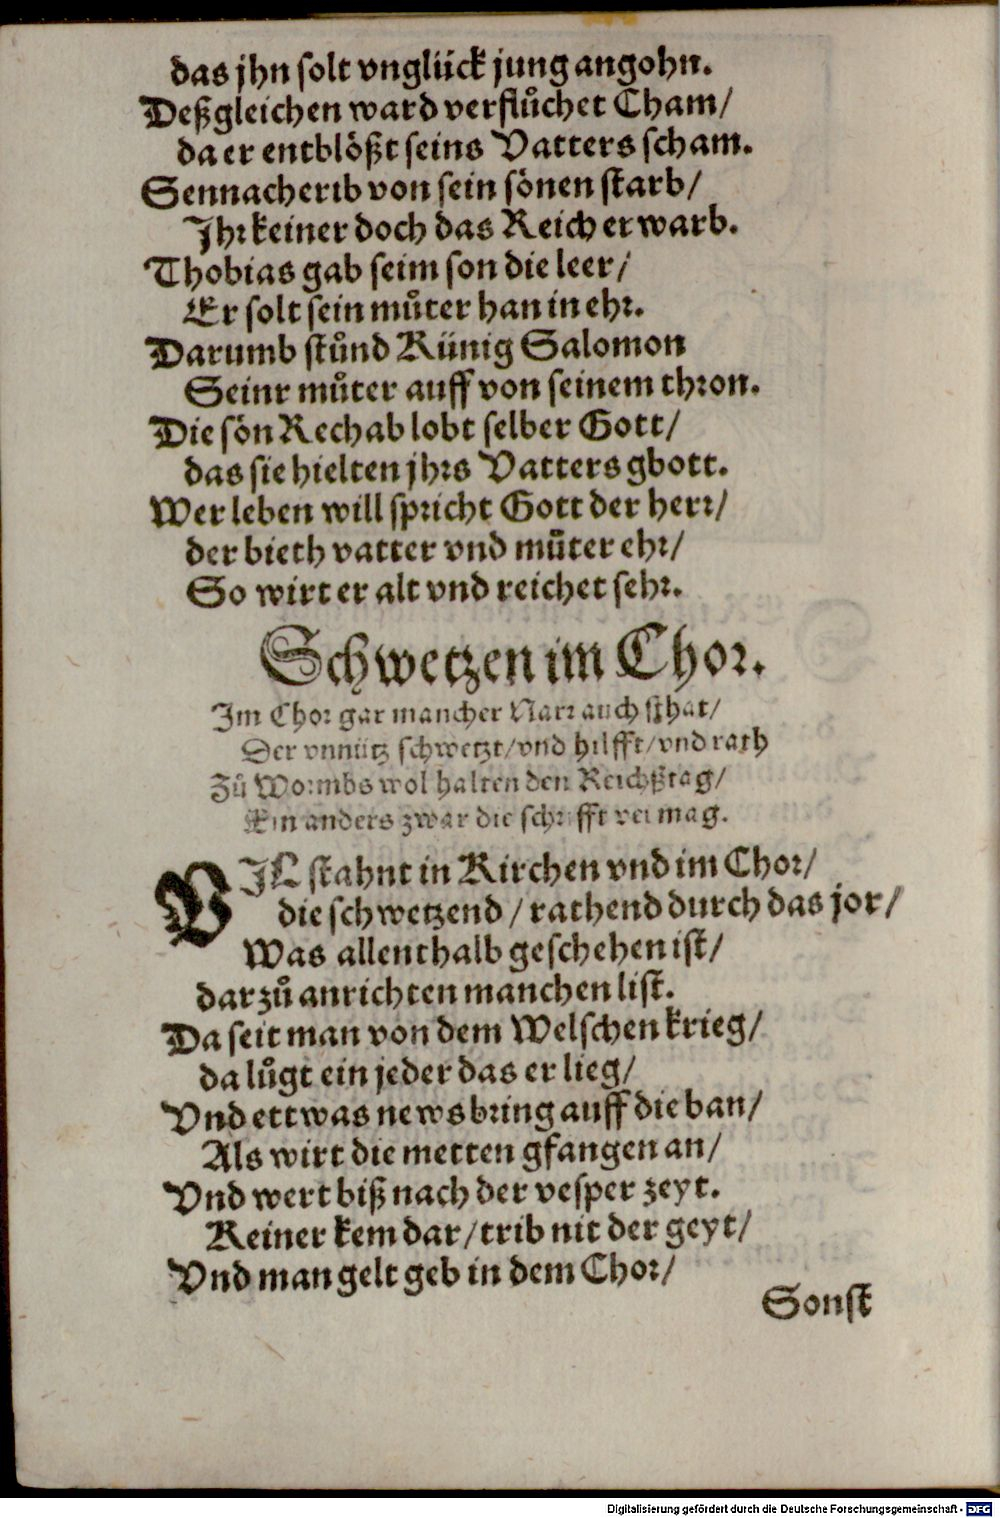 das jhn solt vnglück jung angohn.
Deßgleichen ward verflůchet Cham/
da er entblößt seins Vatters scham.
Sennacherib von sein sönen starb/
Jhr keiner doch das Reich erwarb.
Thobias gab seim son die leer/
Er solt sein můter han in ehr.
Darumb stůnd Künig Salomon
Seinr můter auff von seinem thron.
Die sön Rechab lobt selber Gott/
das sie hielten jhrs Vatters gbott.
Wer leben will spricht Gott der herr/
der bieth vatter vnd můter ehr/
So wirt er alt vnd reichet sehr.
Schwetzen im Chor.
Im Chor gar mancher Narr auch sthat/
Der vnnütz schwetzt/vnd hilfft/vnd rath
Zů Wormbs wol halten den Reichßtag/
Ein anders zwar die schrifft vermag.
VJL stahnt in Kirchen vnd im Chor/
die schwetzend / rathend durch das jor/
Was allenthalb geschehen ist/
darzů anrichten manchen list.
Da seit man von dem Welschen krieg/
da lůgt ein jeder das er lieg/
Vnd ettwas news bring auff die ban/
Als wirt die metten gfangen an/
Vnd wert biß nach der vesper zeyt.
Keiner kem dar/trib nit der geyt/
Vnd man gelt geb in dem Chor/
Sonst
Digitalisierung gefördert durch die Deutsche Forschungsgemeinschaft - DFG